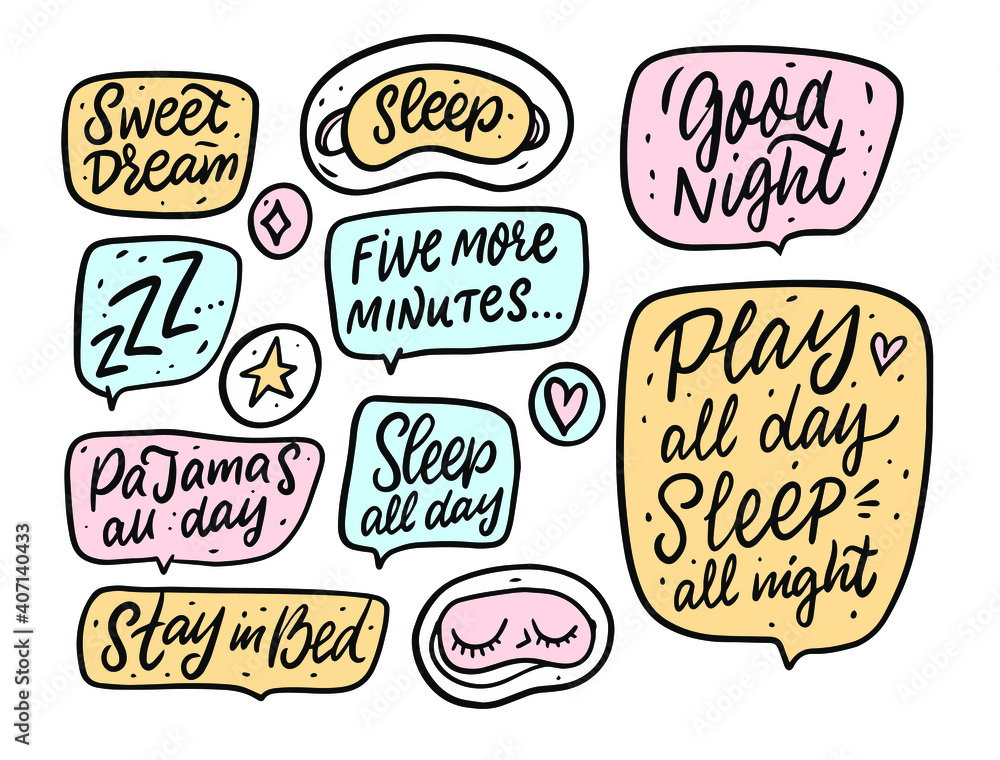 Sweet
Dream
Sleep.
Good
Night
zzz...
Five more
minutes...
Play
all day
Sleep
all night
Pajamas
all day
Sleep
all day
Stay in Bed
Adobe Stock | #407140433